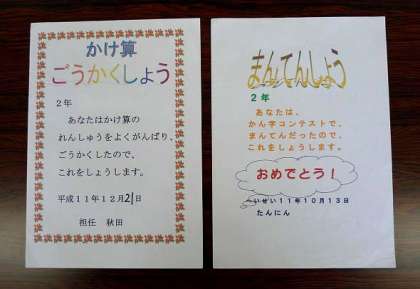 かけ算
ごうかくしょう
2年
あなたはかけ算の
れんしゅうをよくがんばり、
ごうかくしたので、
これをしょうします。
平成11年12月21日
担任 秋田
まんてんしょう
2年
あなたは、
かん字コンテストで、
まんてんだったので、
これをしょうします。
おめでとう!
へいせい11年10月13日
たんにん